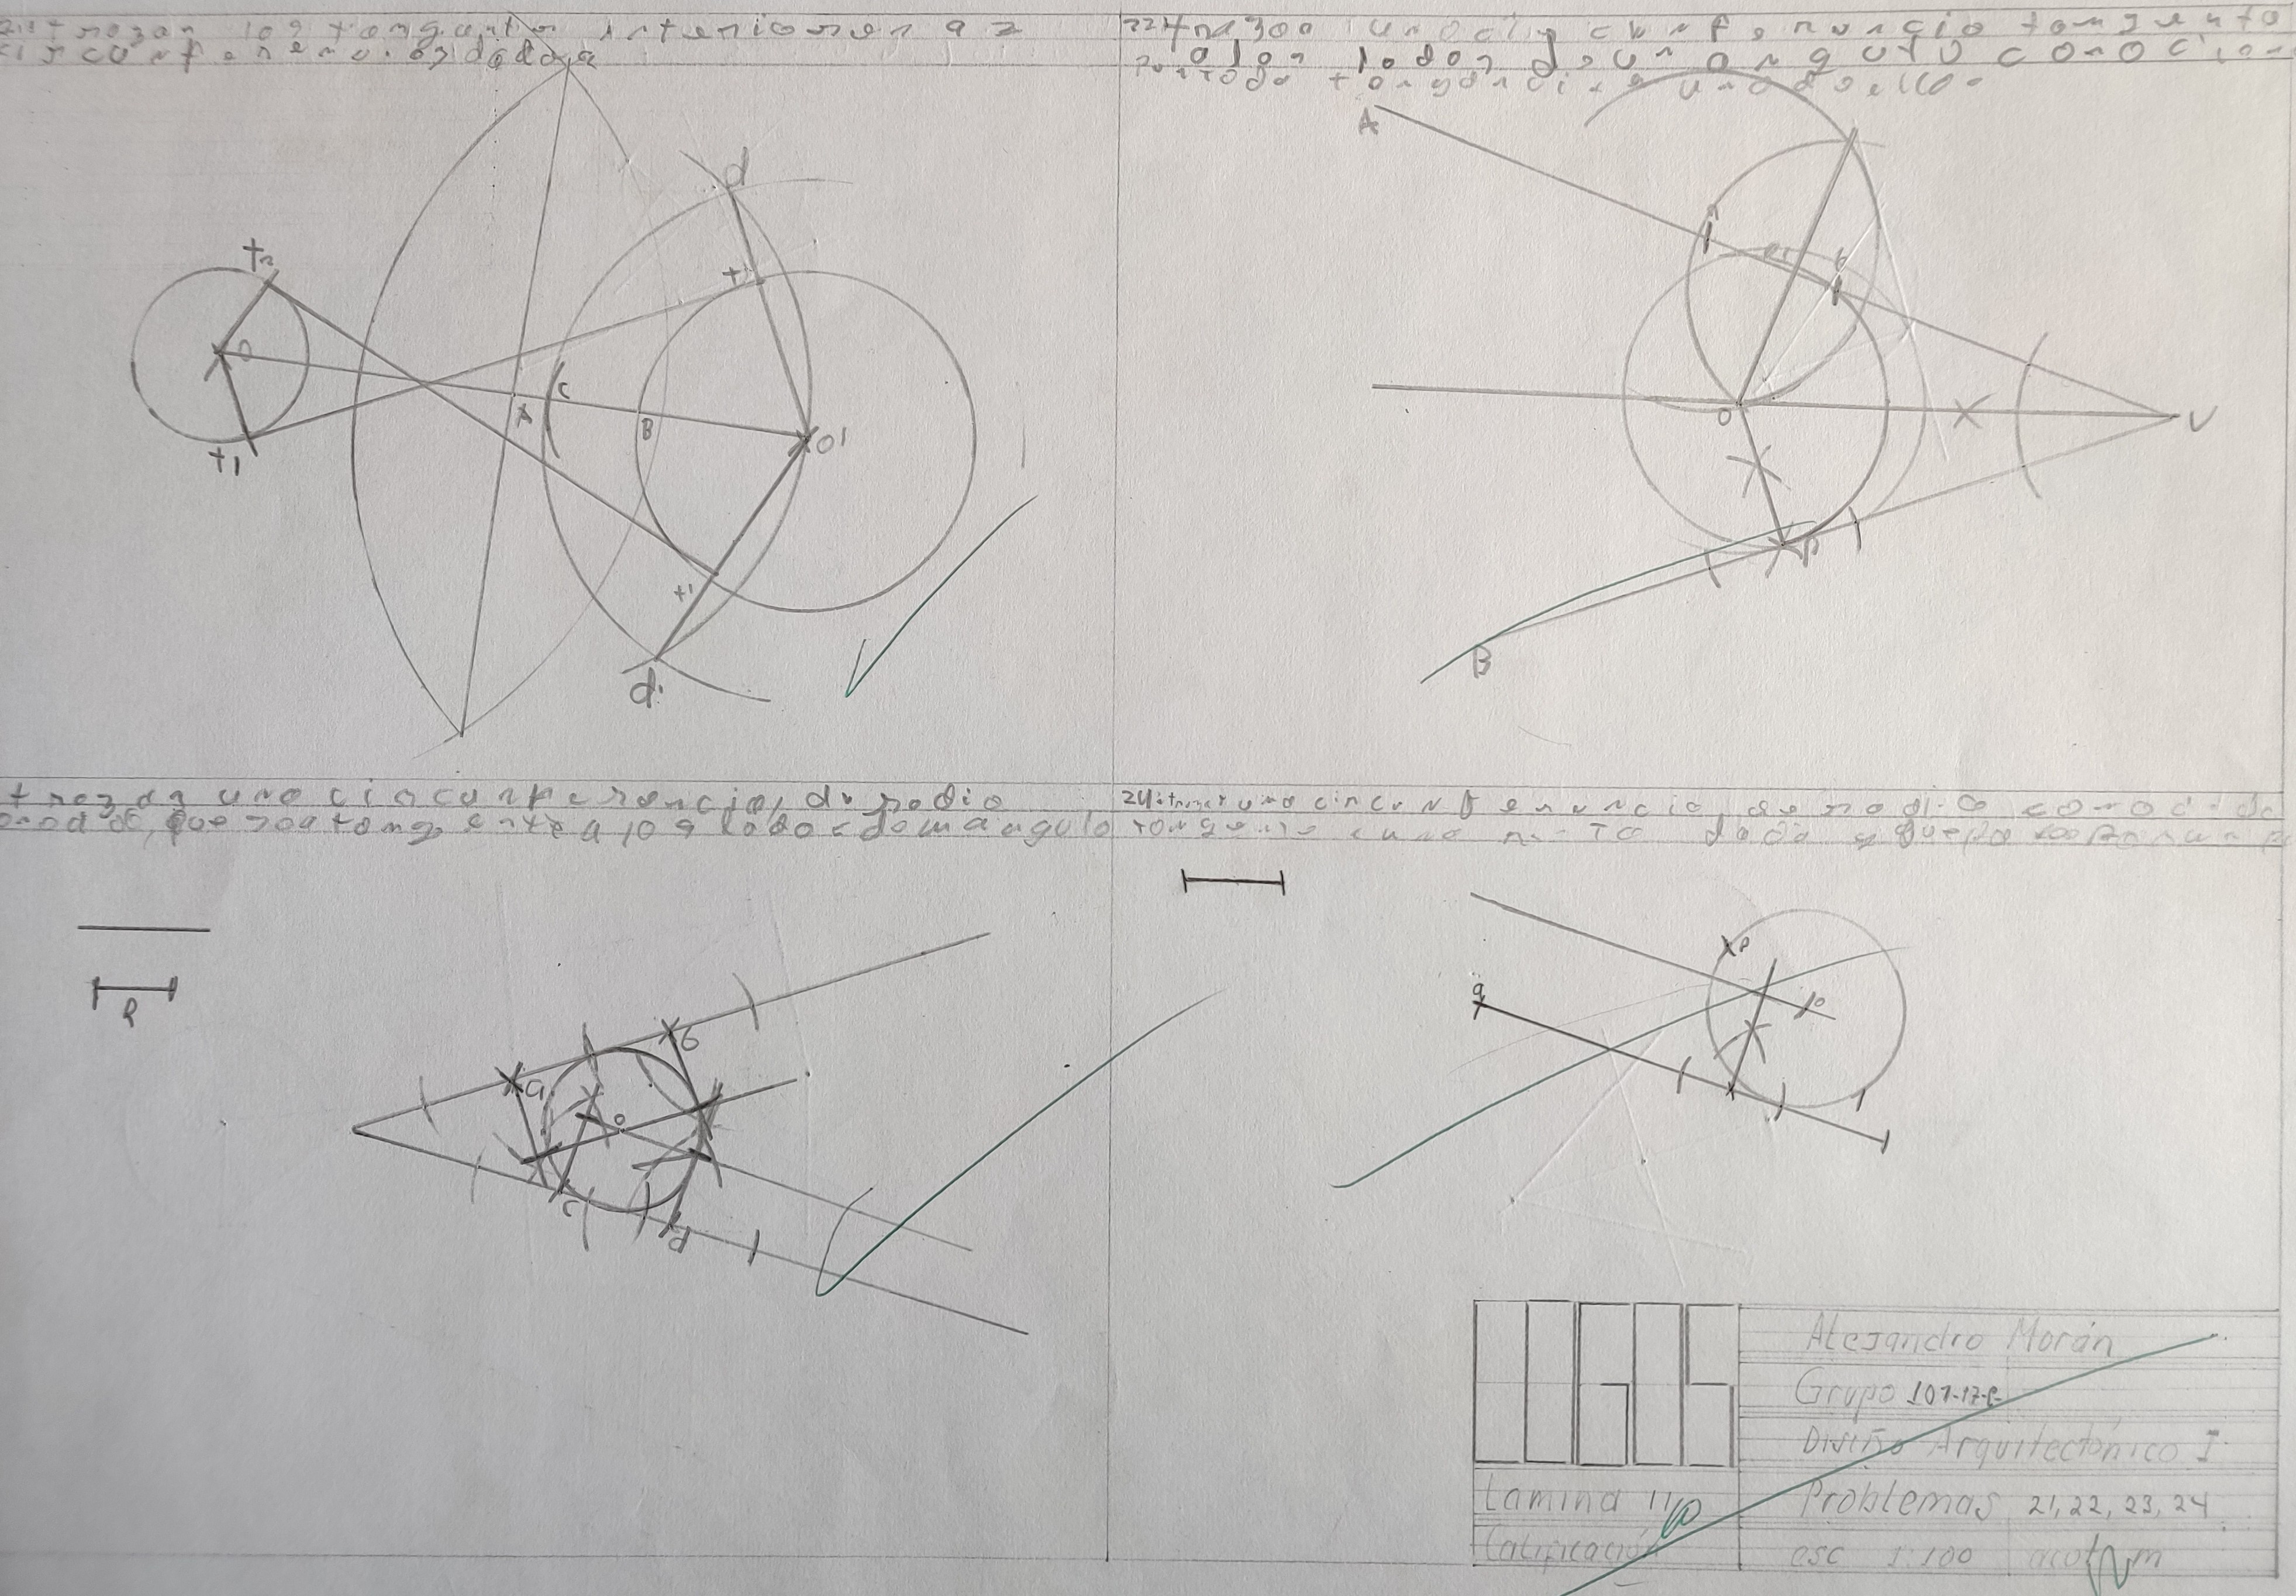 21: trazar las tangentes interiores a 2
circunferencias dadas
22: trazar una circunferencia tangente
a los lados de un angulo conocien
punto de tangencia uno de ellos
A
V
O
P
B
d
t2
t1
O
A
C
B
O1
d'
trazar una circunferencia, de radio
que sea tangente a los lados de un angulo
24: trazar una circunferencia de radio conocido
tangente a una recta dada y que pase por un p
R
a
b
o
c
d
P
o
q
UGS
Alejandro Morán
Grupo 101-17-
Diseño Arquitectónico I
Lamina 11
Problemas 21, 22, 23, 24
Calificación
esc 1:100